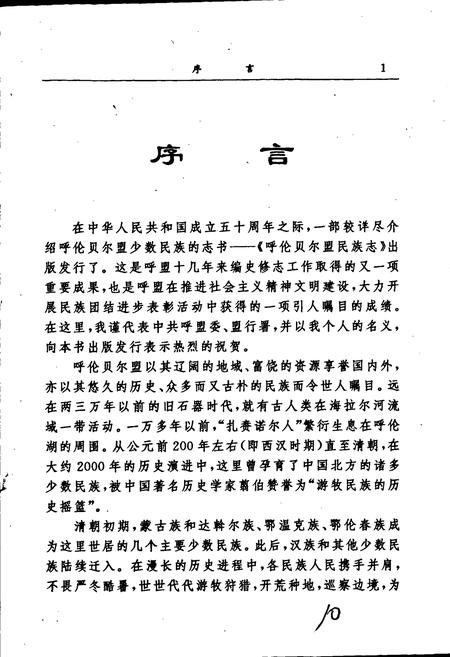 序 言 1
序 言
在中华人民共和国成立五十周年之际，一部较详尽介
绍呼伦贝尔盟少数民族的志书——《呼伦贝尔盟民族志》出
版发行了。这是呼盟十几年来编史修志工作取得的又一项
重要成果，也是呼盟在推进社会主义精神文明建设，大力开
展民族团结进步表彰活动中获得的一项引人瞩目的成绩。
在这里，我谨代表中共呼盟委、盟行署，并以我个人的名义，
向本书出版发行表示热烈的祝贺。
呼伦贝尔盟以其辽阔的地域、富饶的资源享誉国内外，
亦以其悠久的历史、众多而又古朴的民族而令世人瞩目。远
在两三万年以前的旧石器时代，就有古人类在海拉尔河流
域一带活动。一万多年以前，“扎赉诺尔人”繁衍生息在呼伦
湖的周围。从公元前200年左右(即西汉时期)直至清朝，在
大约2000年的历史演进中，这里曾孕育了中国北方的诸多
少数民族，被中国著名历史学家翦伯赞誉为“游牧民族的历
史摇篮”。
清朝初期，蒙古族和达斡尔族、鄂温克族、鄂伦春族成
为这里世居的几个主要少数民族。此后，汉族和其他少数民
族陆续迁入。在漫长的历史进程中，各民族人民携手并肩，
不畏严冬酷暑，世世代代游牧狩猎，开荒种地，巡察边境，为
10